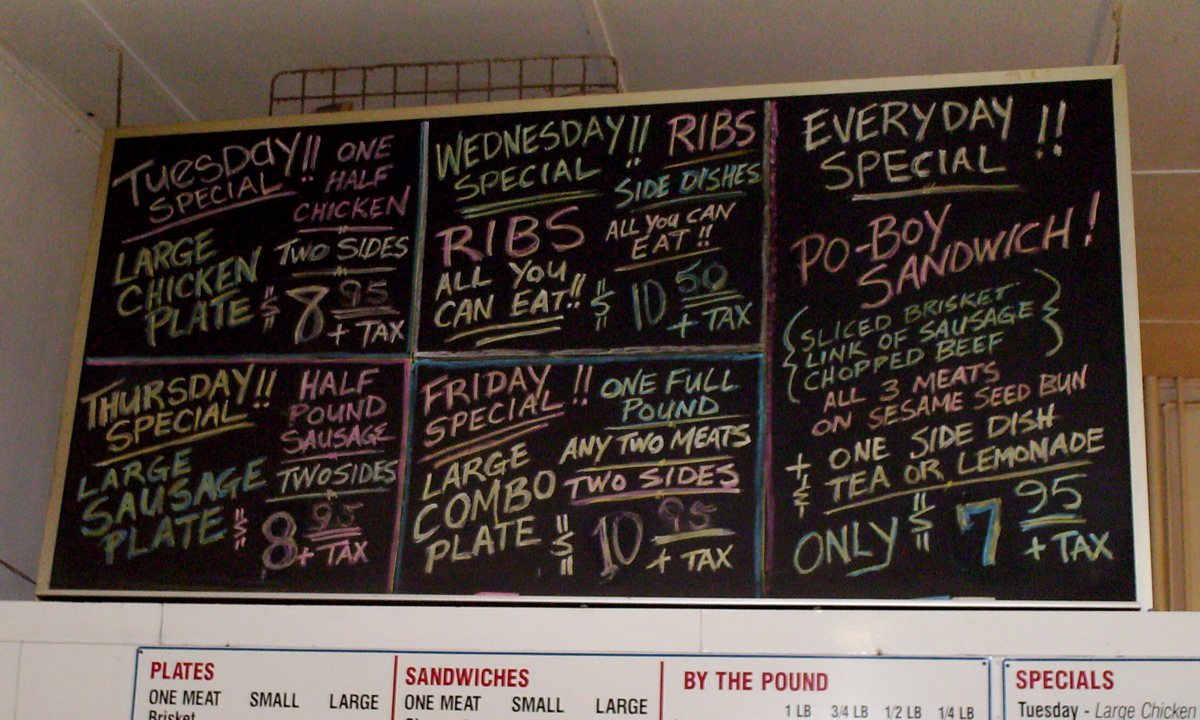 Tuesday!!
SPECIAL
ONE
HALF
CHICKEN
LARGE
CHICKEN
PLATE
TWO SIDES
$ 8 95
+ TAX
WEDNESDAY!!
SPECIAL
RIBS
SIDE DISHES
RIBS
ALL YOU
CAN EAT!!
ALL YOU CAN
EAT!!
$ 10 50
+ TAX
THURSDAY!!
SPECIAL
HALF
POUND
SAUSAGE
LARGE
SAUSAGE
PLATE
TWO SIDES
$ 8 95
+ TAX
FRIDAY!!
SPECIAL
ONE FULL
POUND
LARGE
COMBO
PLATE
ANY TWO MEATS
TWO SIDES
$ 10 95
+ TAX
EVERYDAY!!
SPECIAL
PO-BOY
SANDWICH!
{SLICED BRISKET
LINK OF SAUSAGE
CHOPPED BEEF}
ALL 3 MEATS
ON SESAME SEED BUN
+ ONE SIDE DISH
& TEA OR LEMONADE
ONLY $ 7 95
+ TAX
PLATES
ONE MEAT SMALL LARGE
Brisket
SANDWICHES
ONE MEAT SMALL LARGE
BY THE POUND
1 LB 3/4 LB 1/2 LB 1/4 LB
SPECIALS
Tuesday - Large Chicken